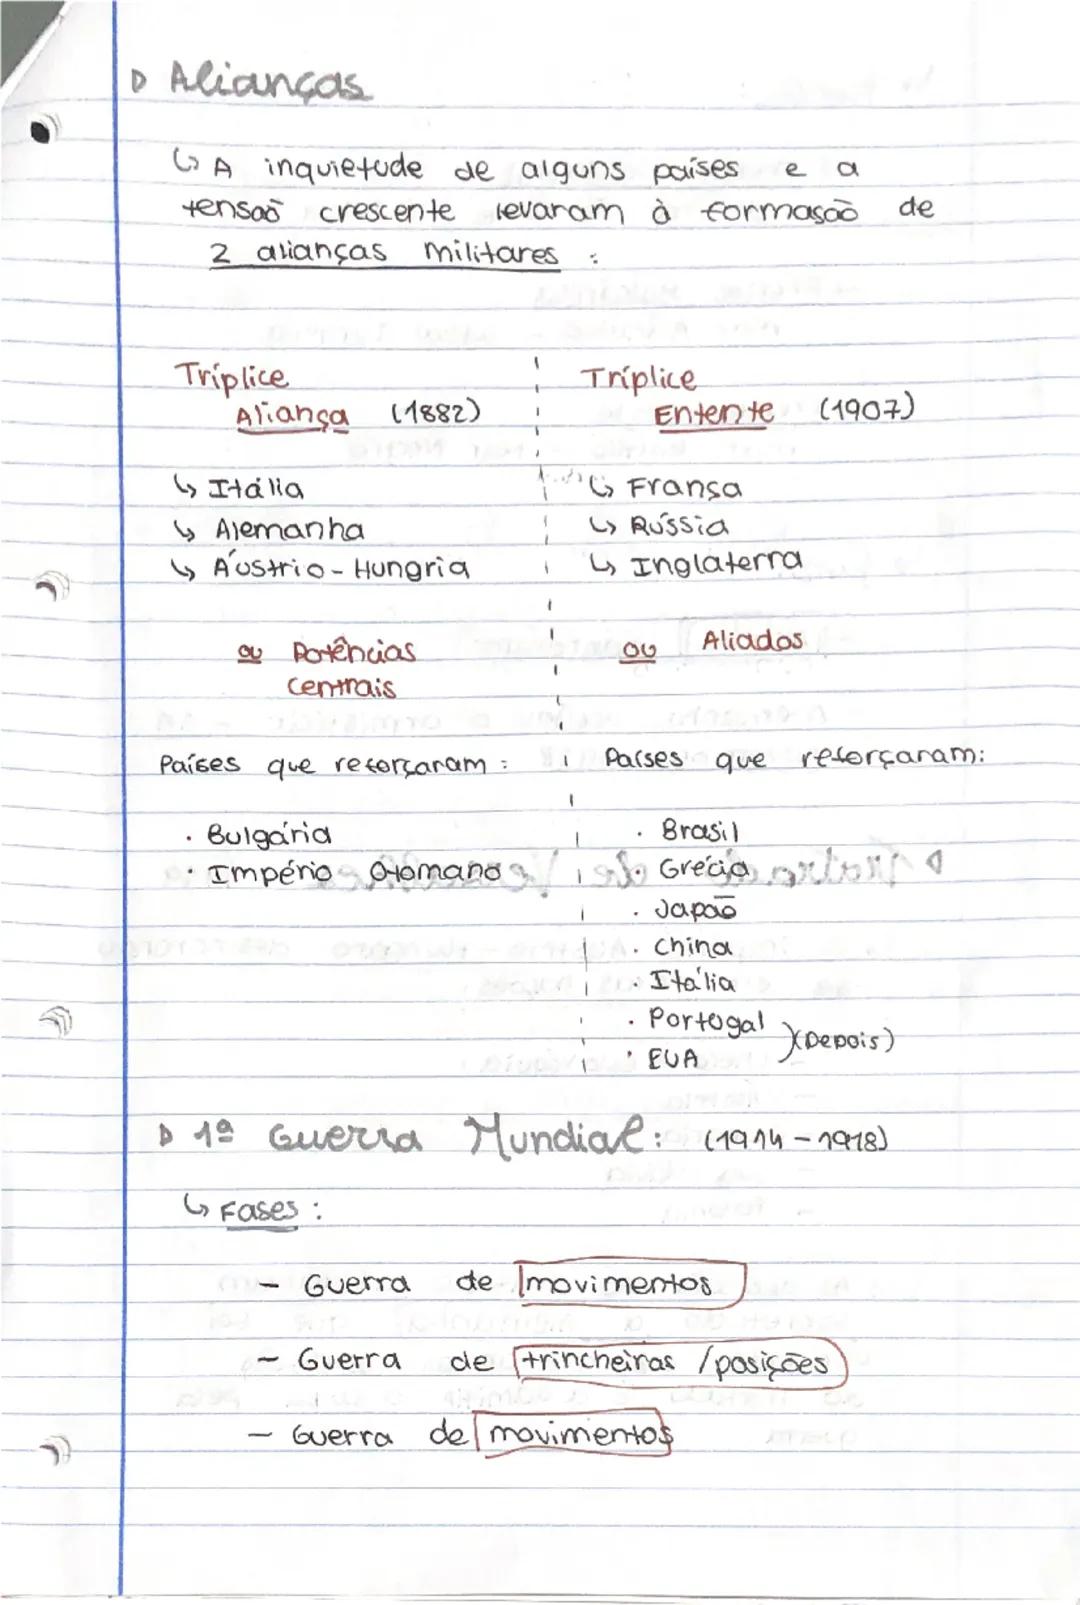 Alianças
↳ A inquietude de alguns países e a
tensão crescente levaram à formação de
2 alianças militares :
Tríplice
Aliança (1882)
↳ Itália
↳ Alemanha
↳ Áustrio - Hungria
ou Potências
Centrais
Países que reforçaram :
· Bulgária
· Império Otomano
Tríplice
Entente (1907)
↳ França
↳ Rússia
↳ Inglaterra
ou Aliados
Países que reforçaram:
· Brasil
· Grécia
· Japão
· China
· Itália
· Portugal
· EUA
(Depois)
1ª Guerra Mundial: (1914 - 1918)
↳ Fases :
- Guerra de movimentos
- Guerra de trincheiras / posições
- Guerra de movimentos